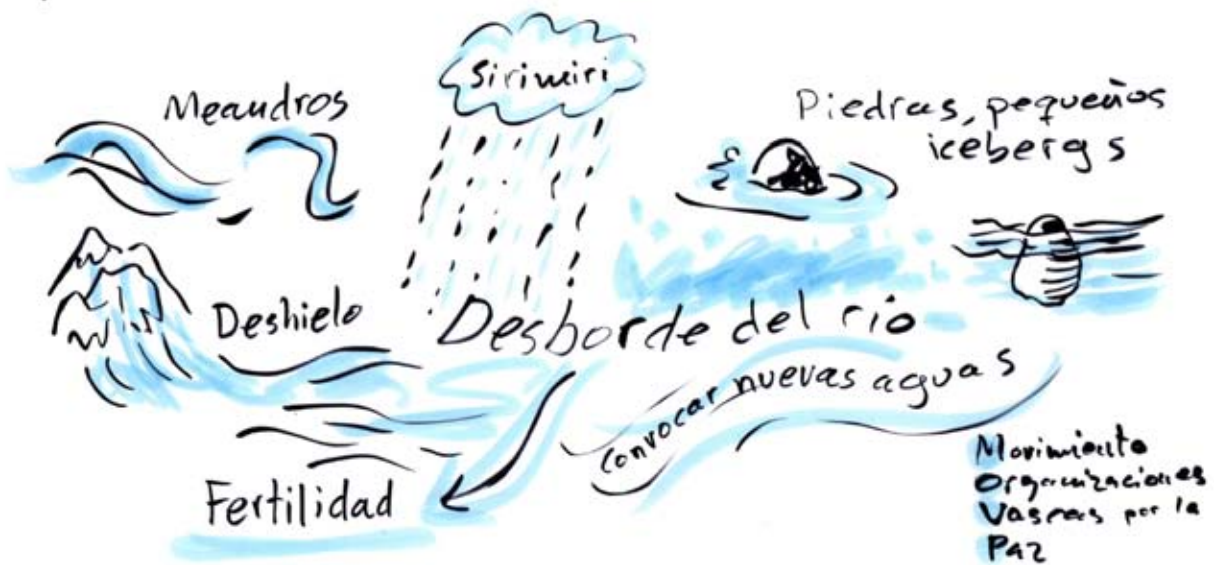 Sirimiri
Meandros
Piedras, pequeños
icebergs
Deshielo
Desborde del río
convocar nuevas aguas
Fertilidad
Movimiento
Organizaciones
Vascas por la
Paz